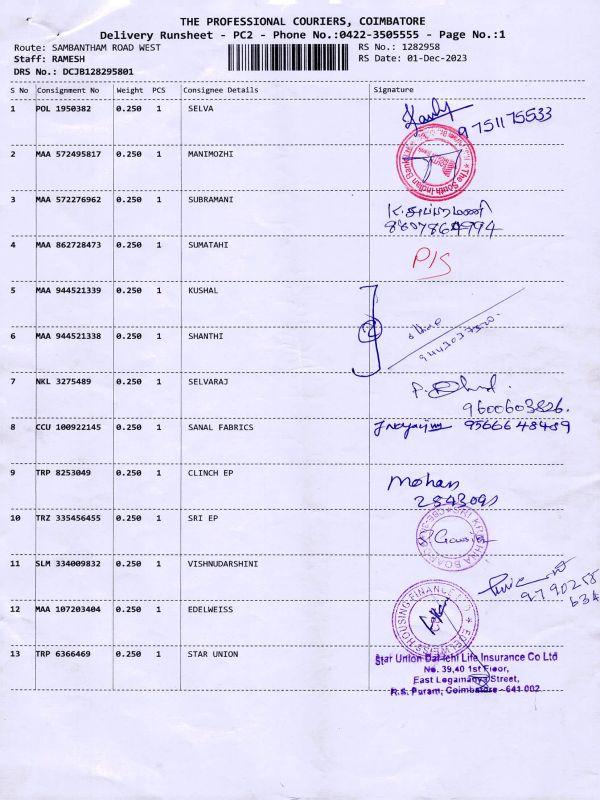 THE PROFESSIONAL COURIERS, COIMBATORE
Delivery Runsheet - PC2 - Phone No.:0422-3505555 - Page No.:1
Route: SAMBANTHAM ROAD WEST RS No.: 1282958
Staff: RAMESH RS Date: 01-Dec-2023
DRS No.: DCJB128295801
S No Consignment No Weight PCS Consignee Details Signature
1 POL 1950382 0.250 1 SELVA
9751175533
2 MAA 572495817 0.250 1 MANIMOZHI
The South Indian Bank
3 MAA 572276962 0.250 1 SUBRAMANI க.சுப்ரமணி
8807864994
4 MAA 862728473 0.250 1 SUMATAHI P/S
5 MAA 944521339 0.250 1 KUSHAL
2
6 MAA 944521338 0.250 1 SHANTHI
7 NKL 3275489 0.250 1 SELVARAJ
9600603826.
8 CCU 100922145 0.250 1 SANAL FABRICS 9566648489
9 TRP 8253049 0.250 1 CLINCH EP Mohan
10 TRZ 335456455 0.250 1 SRI EP
11 SLM 334009832 0.250 1 VISHNUDARSHINI
9790258
634
12 MAA 107203404 0.250 1 EDELWEISS
EDELWEISS HOUSING FINANCE
13 TRP 6366469 0.250 1 STAR UNION
Star Union Dai-ichi Life Insurance Co Ltd
No. 39,40 1st Floor,
East Logamanya Street,
R.S. Puram, Coimbatore - 641 002